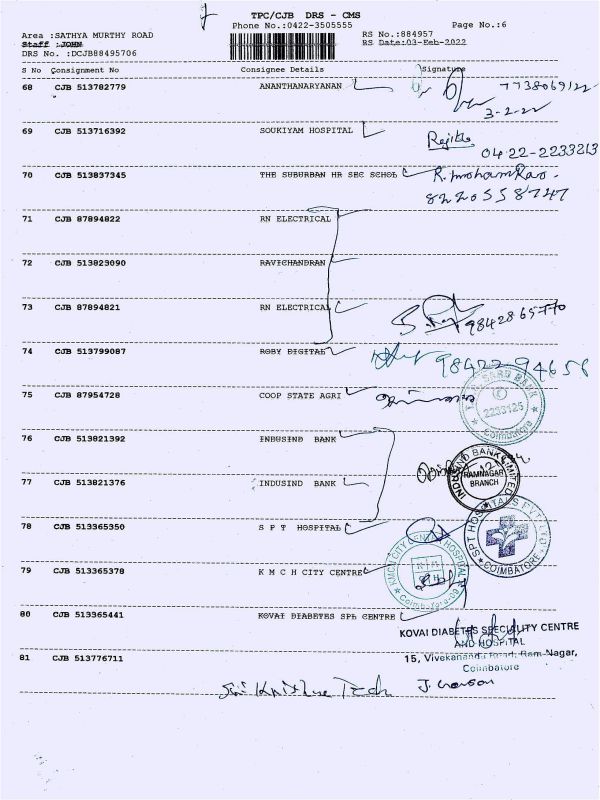 TPC/CJB DRS - CMS
Phone No.:0422-3505555
Page No.:6
Area :SATHYA MURTHY ROAD
Staff :JOHN
DRS No. :DCJB88495706
RS No.:884957
RS Date:03-Feb-2022
S No Consignment No Consignee Details Signature
68 CJB 513782779 ANANTHANARYANAN
3-2-22
69 CJB 513716392 SOUKIYAM HOSPITAL
0422-2233213
70 CJB 513837345 THE SUBURBAN HR SEC SCHOL
8220558747
71 CJB 87894822 RN ELECTRICAL
72 CJB 513823090 RAVICHANDRAN
73 CJB 87894821 RN ELECTRICAL
9842865770
74 CJB 513799087 ROBY DIGITAL
98422-94656
75 CJB 87954728 COOP STATE AGRI
BANK
2233125
Coimbatore
76 CJB 513821392 INDUSIND BANK
77 CJB 513821376 INDUSIND BANK
INDUSIND BANK LIMITED
RAMNAGAR
BRANCH
78 CJB 513365350 S P T HOSPITAL
SPT HOSPITALS PVT LTD
COIMBATORE
79 CJB 513365378 K M C H CITY CENTRE
KMCH CITY CENTRE HOSPITAL
80 CJB 513365441 KOVAI DIABETES SPL CENTRE
KOVAI DIABETES SPECIALITY CENTRE
AND HOSPITAL
15, Vivekananda Road, Ram Nagar,
Coimbatore
81 CJB 513776711
Tech